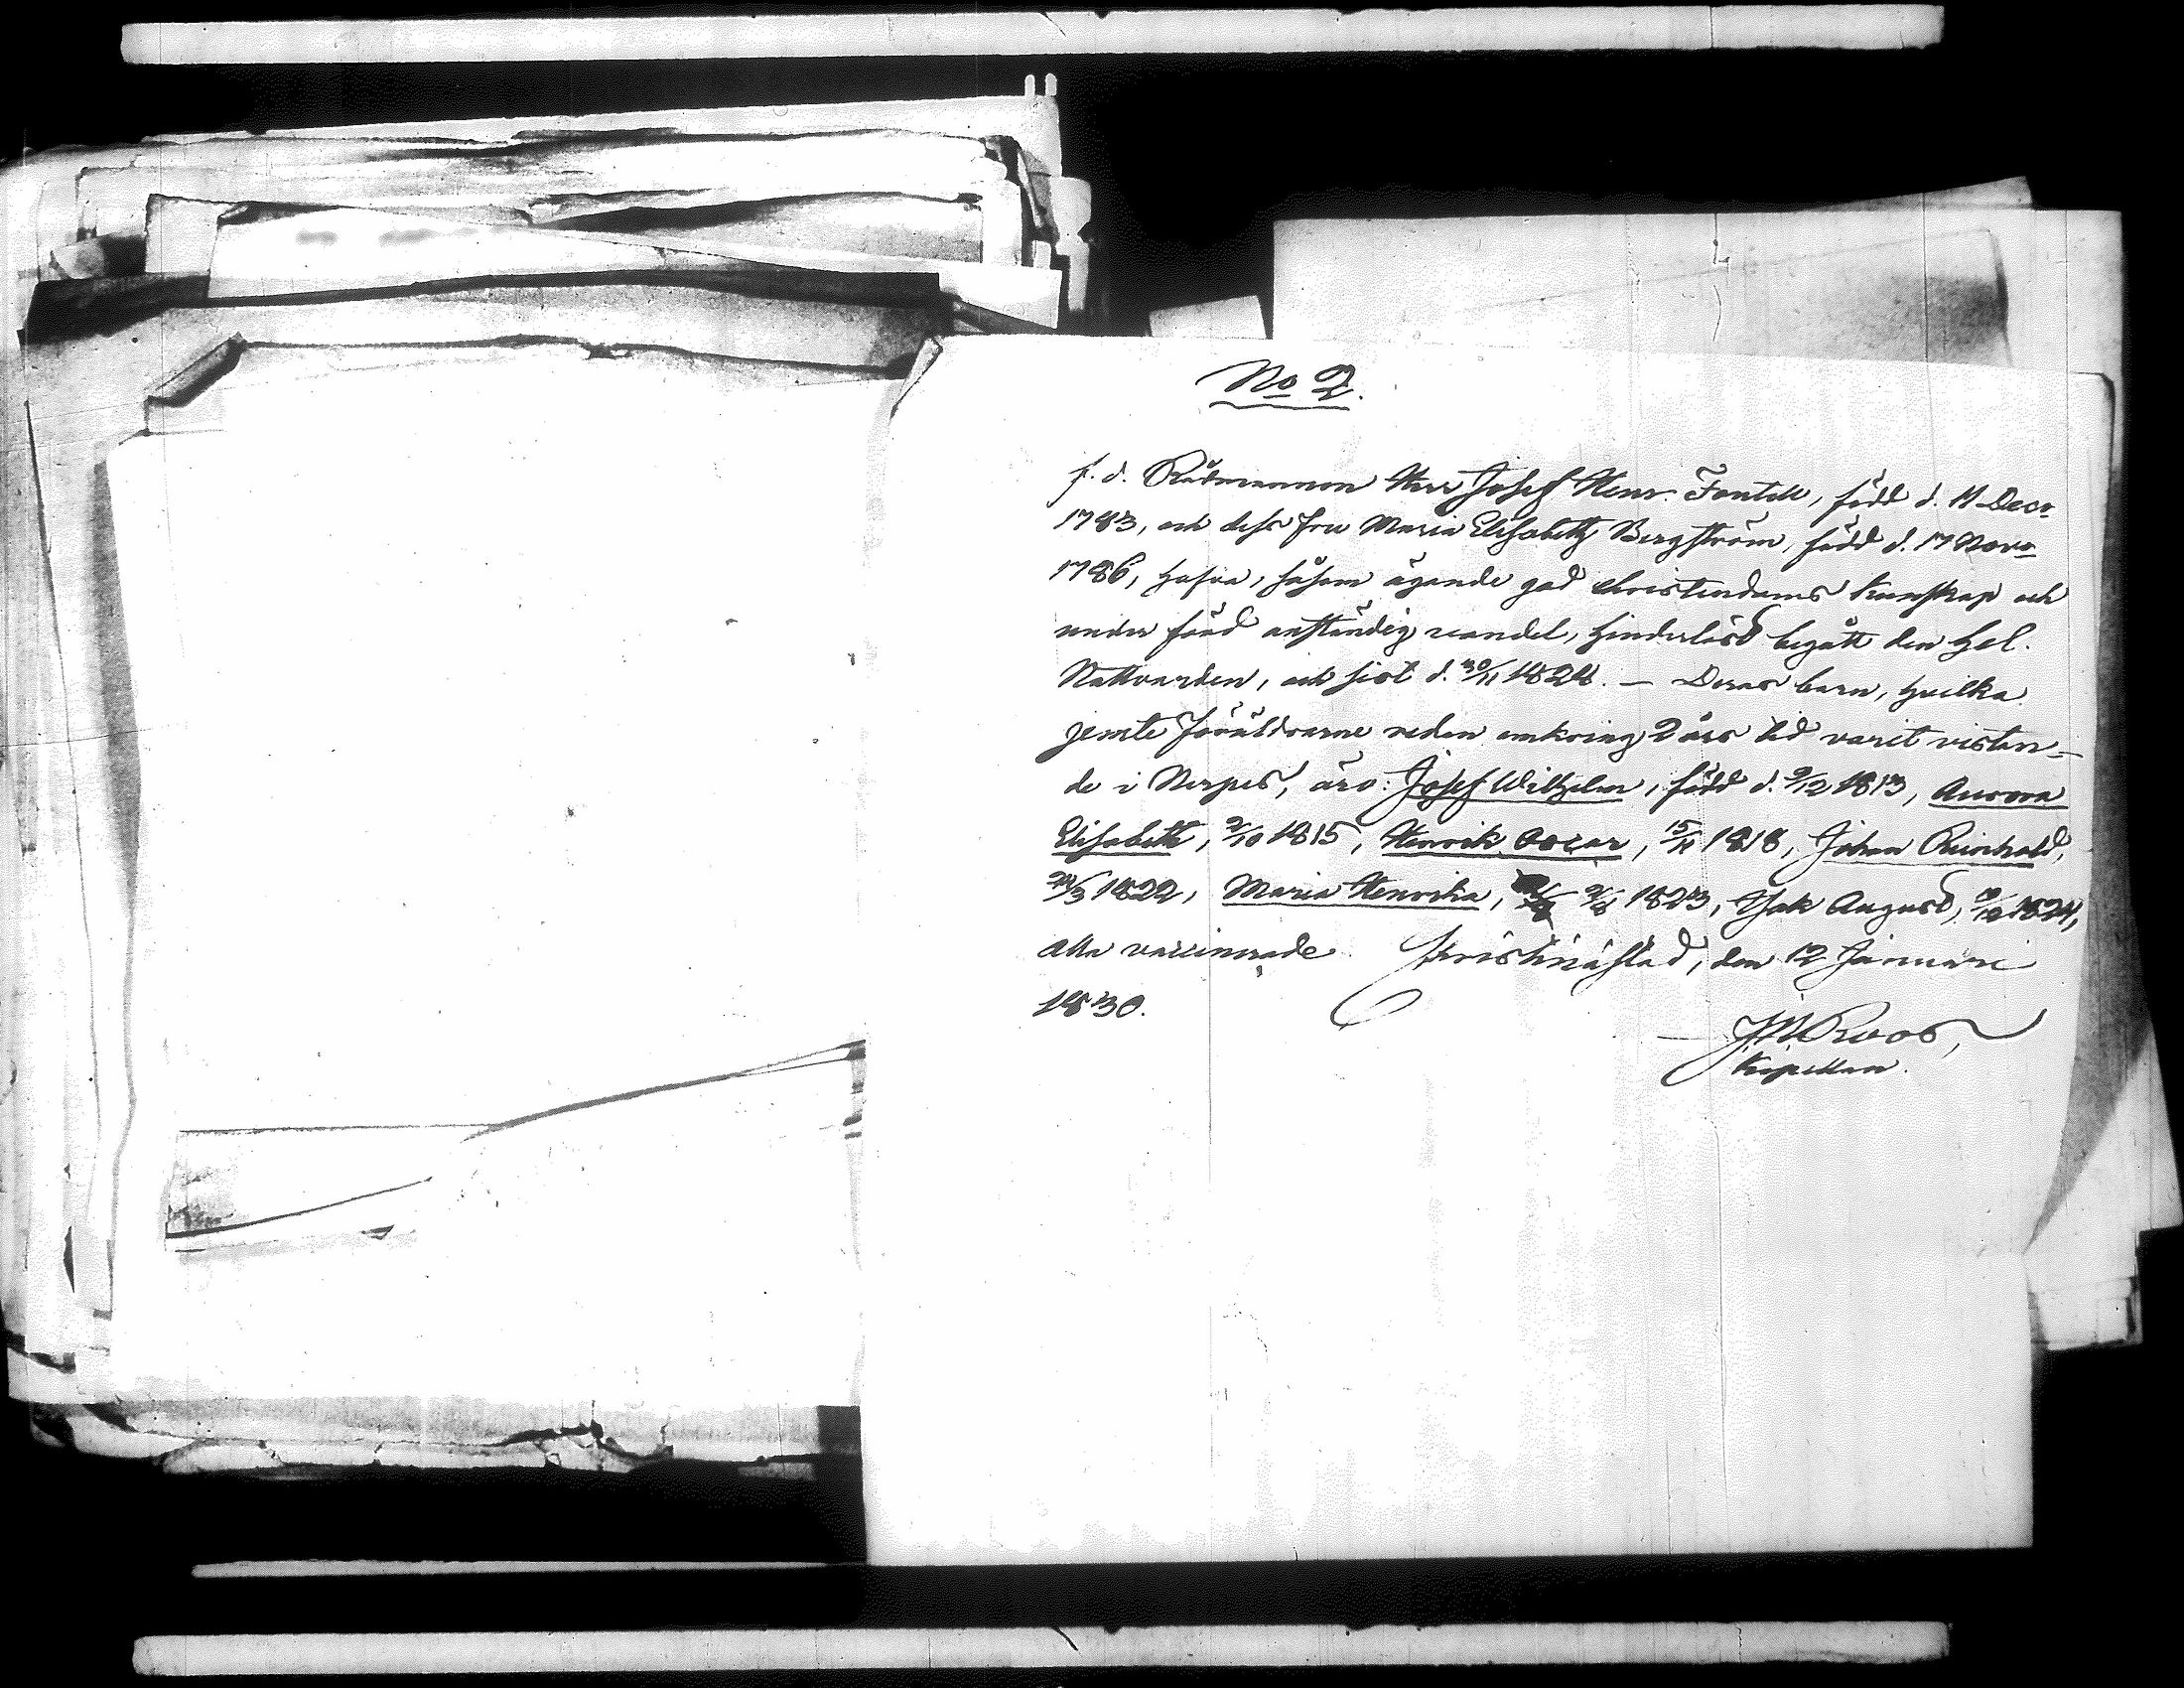 No 2.
f. d. Rådmannen Herr Josef Henr. Fontell, född d. 11 Decr
1783, och dess fru Maria Elisabeth Bergström, född d. 17 Novr
1786, hafva, såsom ägande god christendoms kunskap och
under förd anständig vandel, hinderlöst begått den Hel.
Nattvarden, och sist d. 30/11 1828. — Deras barn, hvilka
jemte föräldrarne redan omkring 2 års tid varit vistan-
de i Nerpes, äro: Josef Wilhelm, född d. 9/12 1813, Aurora
Elisabeth, 2/10 1815, Henrik Oscar, 15/11 1818, Johan Reinhold,
1822, Maria Henrika, 1823, Isak August, 1824,
alla vaccinerade. Christinæstad, den 12 Januarii
1830.
Roos,
Kapellan.